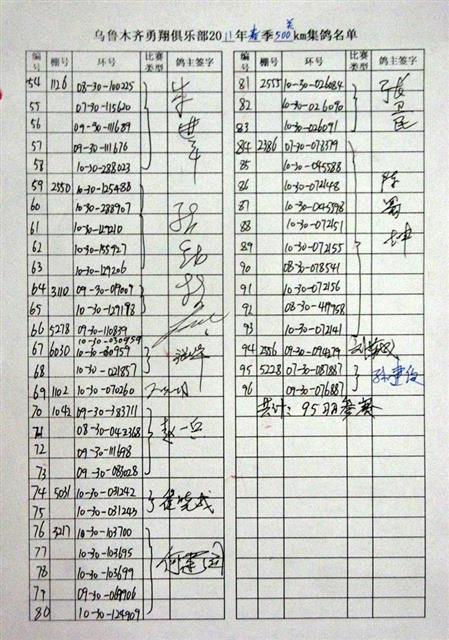 乌鲁木齐勇翔俱乐部2011年春季500km集鸽名单
编号 棚号 环号 比赛类型 鸽主签字
54 1126 08-30-100225
55 07-30-115620
56 09-30-111689
57 09-30-111676
58 10-30-288023
59 2550 10-30-125488
60 10-30-288907
61 10-30-129210
62 10-30-155927
63 10-30-129206
64 3110 09-30-09009
65 10-30-129198
66 5278 09-30-110839
10-30-030959
67 6030 10-30-30959
68 10-30-021857
69 1102 10-30-070260
70 1042 09-30-383711
71 08-30-042368 赵一兵
72 09-30-111698
73 09-30-083028
74 5031 10-30-031242
75 10-30-031243
76 3217 10-30-103700
77 10-30-103695
78 10-30-103699 何建国
79 09-30-069906
80 10-30-124909
编号 棚号 环号 比赛类型 鸽主签字
81 2555 10-30-026084 张卫民
82 10-30-026090
83 10-30-026091
84 2386 07-30-073579
85 10-30-045588
86 10-30-072148
87 10-30-045598
88 10-30-072151
89 10-30-072155
90 08-30-078541
91 10-30-072156
92 08-30-419758
93 10-30-072141
94 2556 09-30-094279
95 5228 07-30-087887 孙建俊
96 09-30-076887
共计：95羽参赛